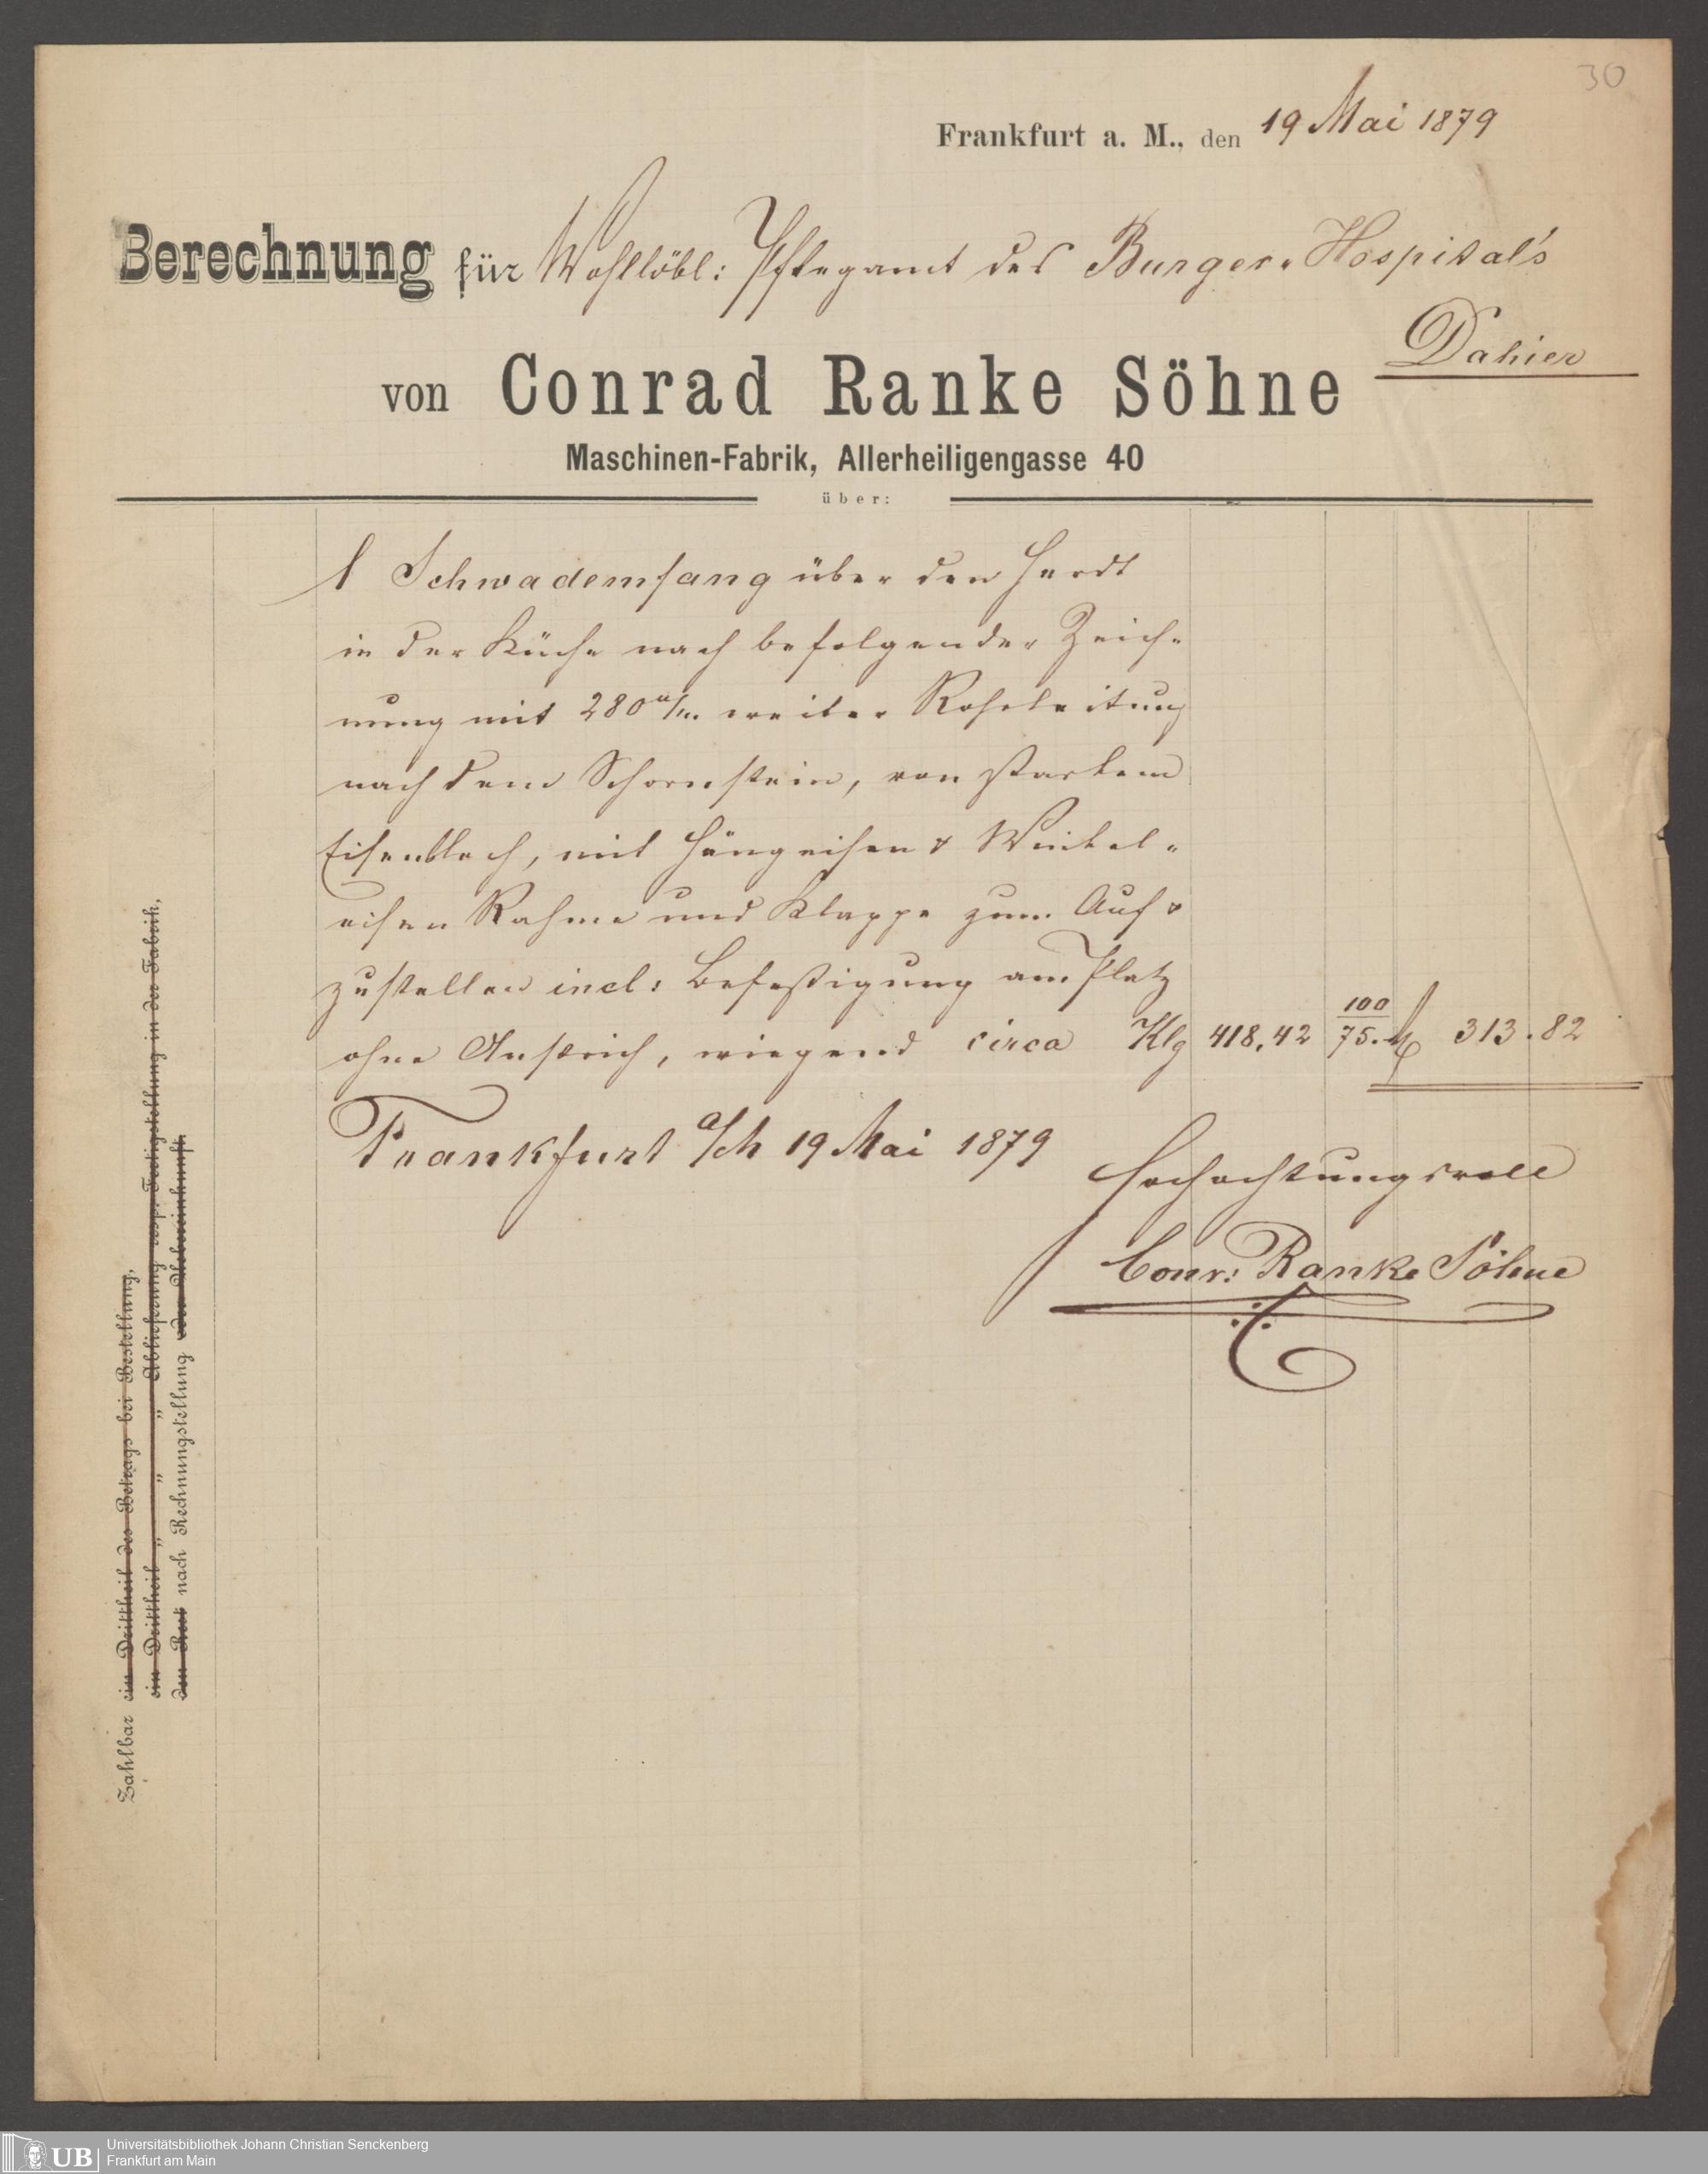 30
Frankfurt a. M., den 19 Mai 1879
Berechnung für Wohllöbl: Pflegamt des Burger-Hospital's
Dahier
von Conrad Ranke Söhne
Maschinen-Fabrik, Allerheiligengasse 40
über:
1 Schwademfang über den Herdt
in der Küche nach befolgender Zeich-
nung mit 280 m/m. weiter Rohrleitung
nach dem Schornstein, von starkem
Eisenblech, mit Hängeisen & Winkel-
eisen Rahme und Klappe zum Auf &
zustellen incl: Befestigung am Platz
ohne Anstrich, wiegend circa Klg 418,42 100/75. M 313.82
Frankfurt a/M 19 Mai 1879
Hochachtungsvoll
Conr: Ranke Söhne
Zahlbar ein Drittheil des Betrags bei Bestellung,
ein Drittheil „ „ „ Ablieferung resp. Fertigstellung in der Fabrik,
den Rest nach Rechnungstellung oder Uebereinkunft.
UB
Universitätsbibliothek Johann Christian Senckenberg
Frankfurt am Main